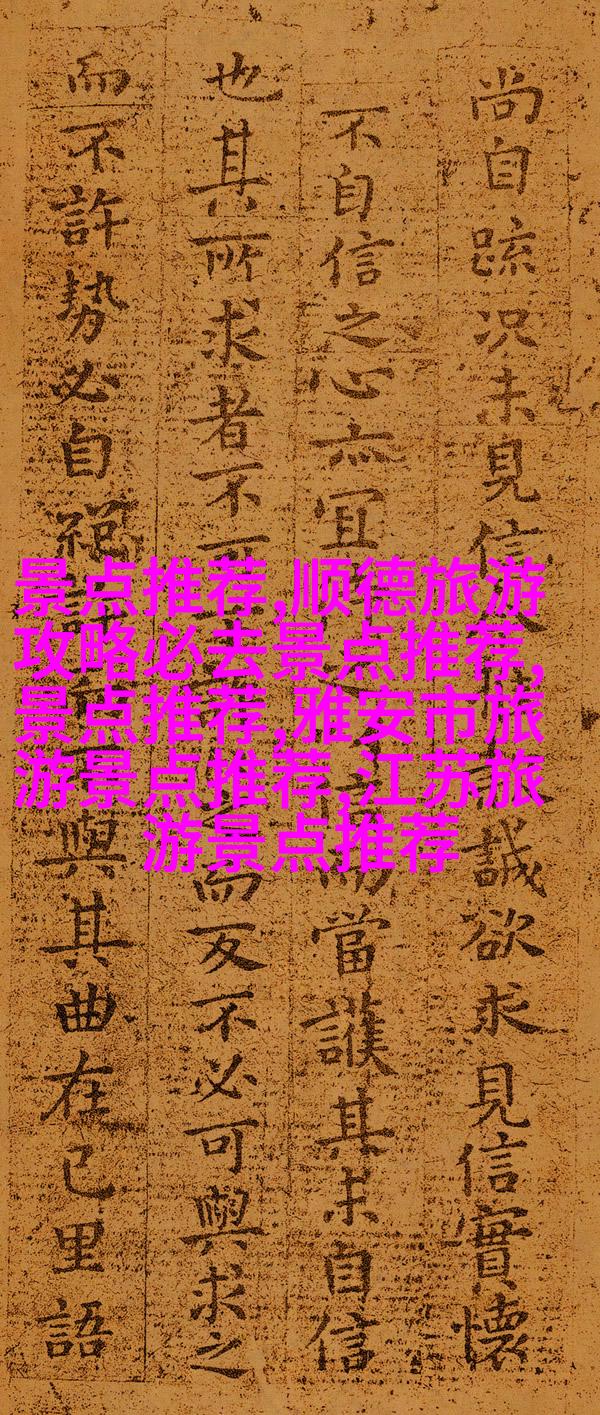 尚自疏况未見信誠欲求見信實懷
不自信之心亦宜當護其未自信
也其所求者不可而反不必可與求之
而不許勢必自絕許與其曲在己里語
景点推荐,顺德旅游
攻略必去景点推荐,
景点推荐,雅安市旅
游景点推荐,江苏旅
游景点推荐